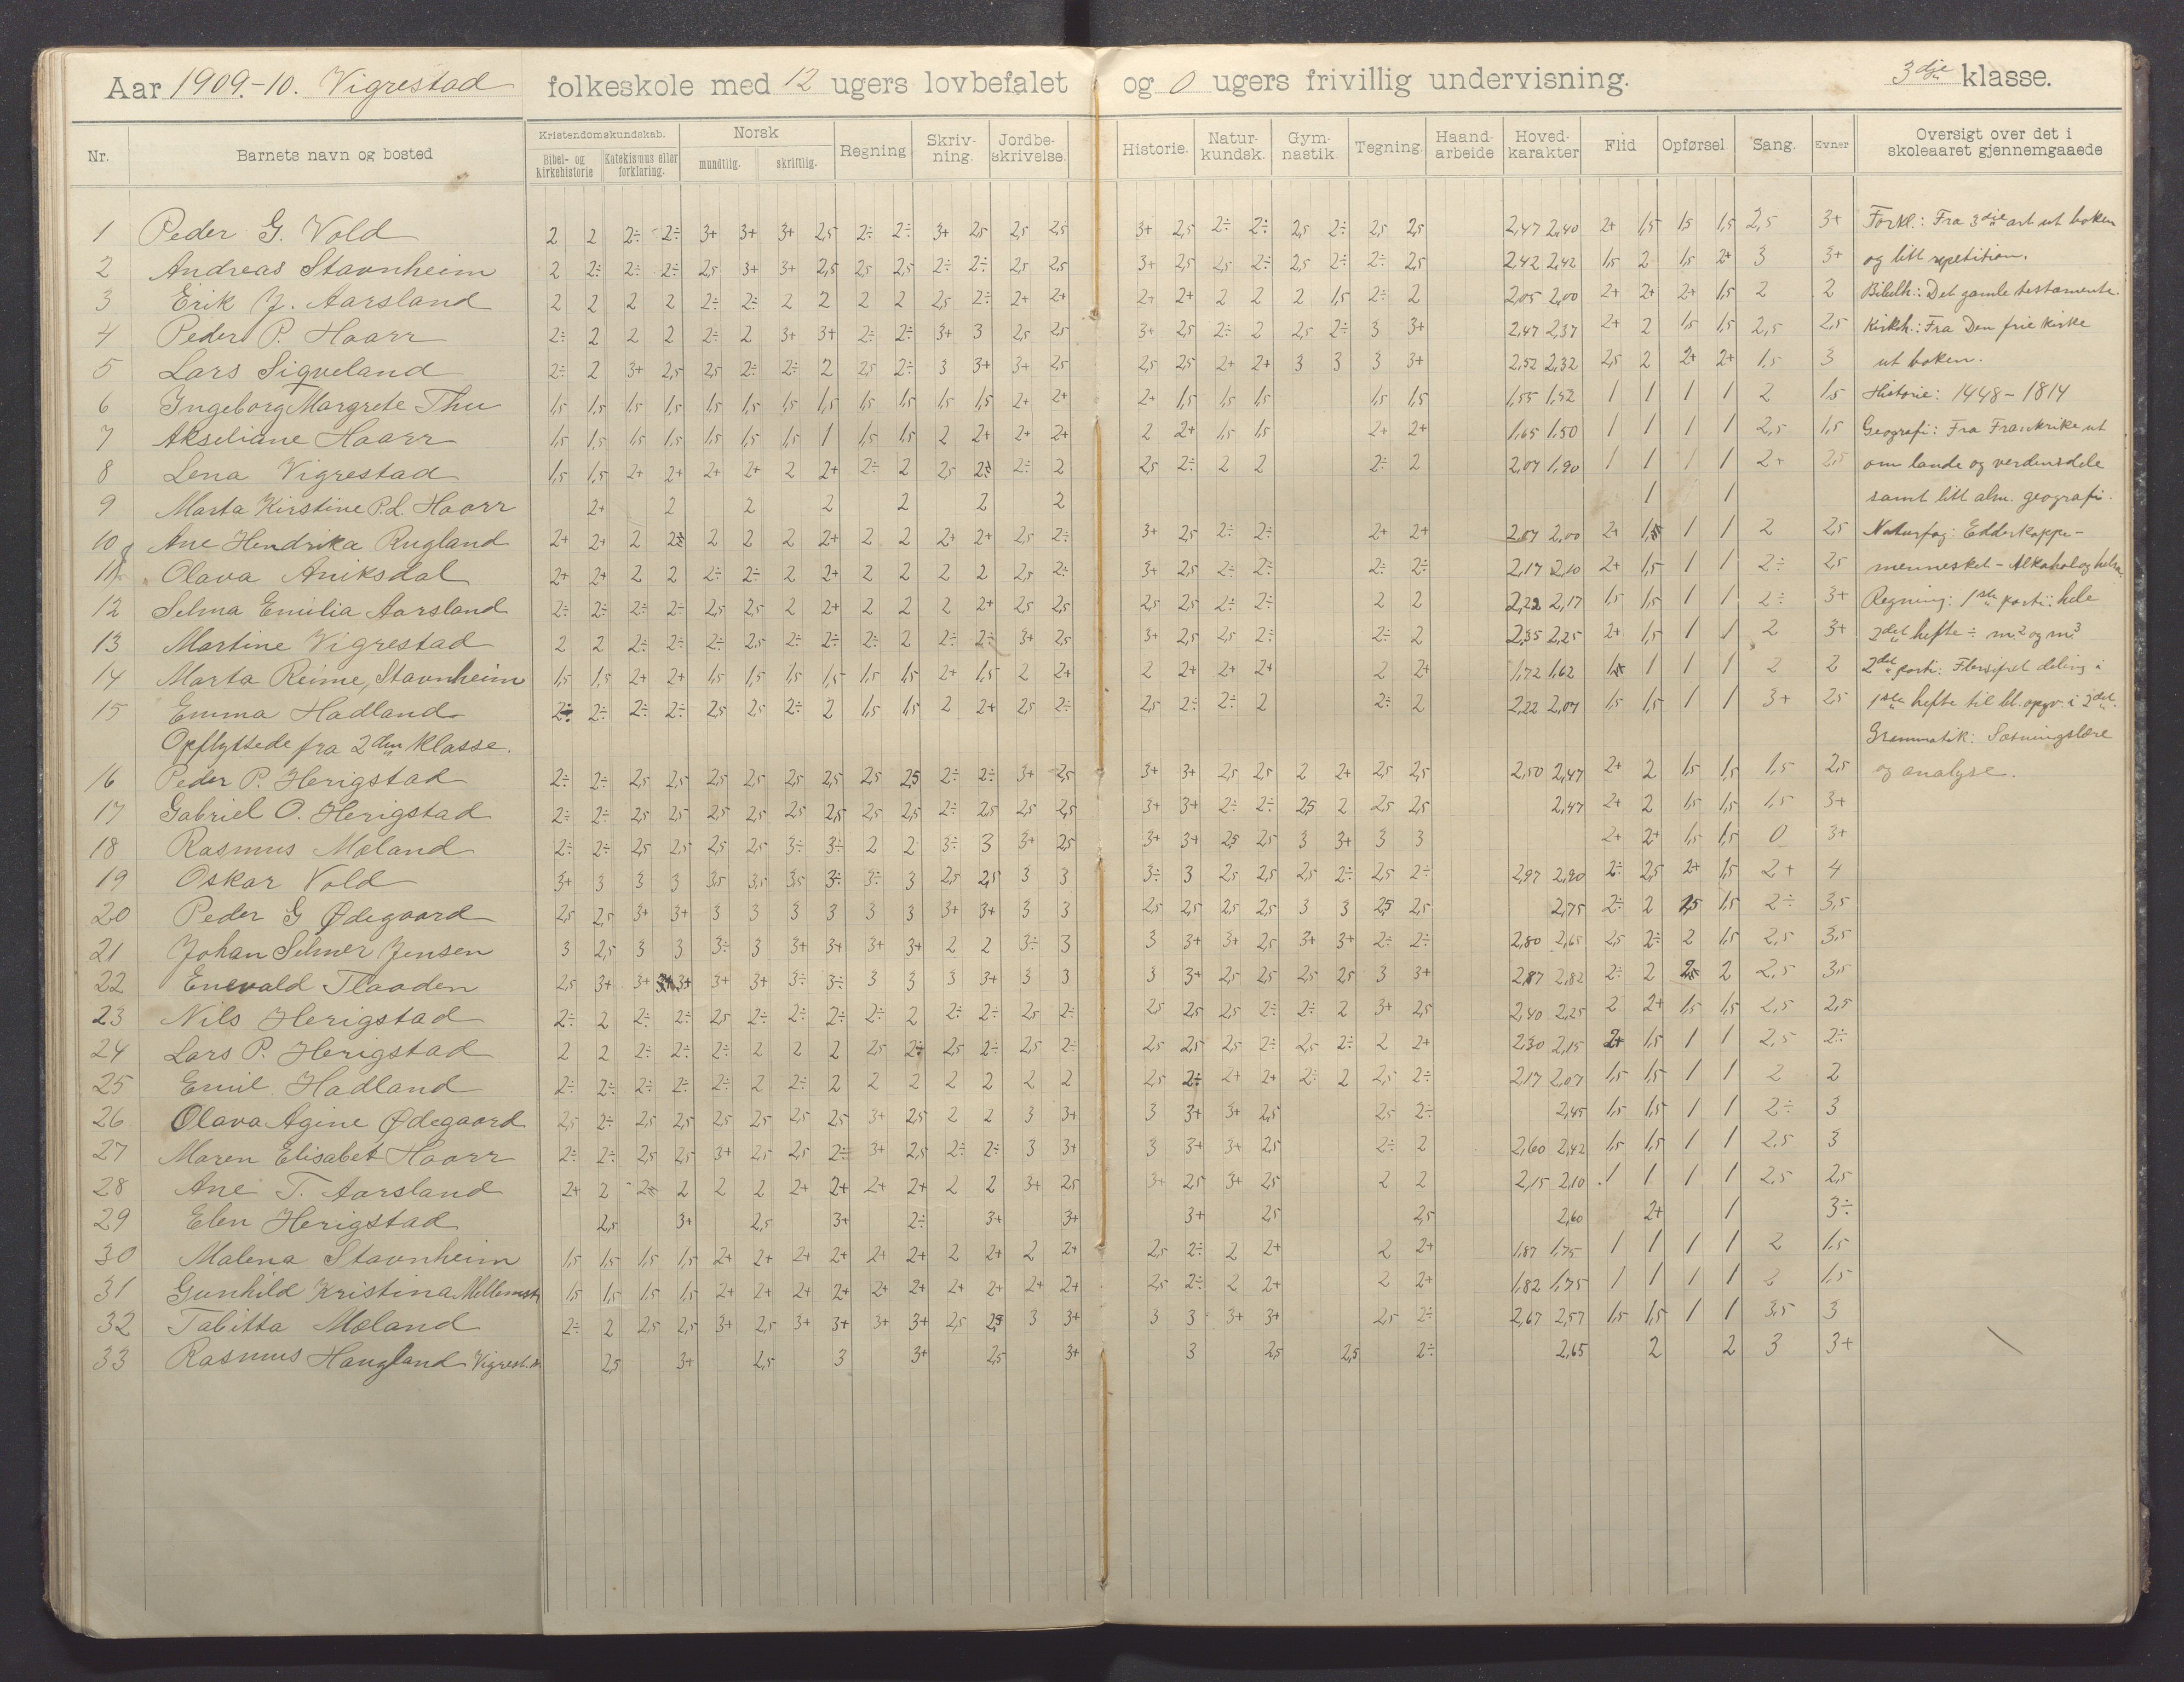 Aar 1909.-10. Vigrestad folkeskole med 12 ugers lovbefalet og 0 ugers frivillig undervisning. 3dje klasse.
Nr. Barnets navn og bosted Kristendomskundskab. Bibel- og Kirkehistorie Katekismus eller forklaring. Norsk mundtlig. skriftlig. Regning Skriv-ning. Jordbe-skrivelse. Historie. Natur-kundsk. Gym-nastik Tegning. Haand-arbeide Hoved-karakter Flid Opførsel Sang. Evner Oversigt over det i skoleaaret gjennemgaaede
1 Peder G. Vold 2 2 2÷ 2÷ 3+ 3+ 3+ 2,5 2÷ 2÷ 3+ 2,5 2,5 2,5 3+ 2,5 2÷ 2÷ 2,5 2÷ 2,5 2,5 2,47 2,40 2+ 1,5 1,5 1,5 2,5 3+ Forkl.: Fra 3dje art ut boken
2 Andreas Stavnheim 2 2÷ 2÷ 2÷ 2,5 3+ 3+ 2,5 2,5 2,5 2÷ 2÷ 2,5 2,5 3+ 2,5 2,5 2÷ 2,5 2÷ 2÷ 2,5 2,42 2,42 1,5 2 1,5 2+ 3 3+ og litt repetition.
3 Erik J. Aarsland 2 2 2 2 2÷ 2÷ 2 2 2 2 2,5 2÷ 2+ 2+ 2+ 2+ 2 2 2 1,5 2÷ 2 2,05 2,00 2+ 2+ 2+ 1,5 2 2 Bibelh.: Det gamle testamente.
4 Peder P. Haarr 2÷ 2 2 2 2÷ 2 3+ 3+ 2÷ 2÷ 3+ 3 2,5 2,5 3+ 2,5 2÷ 2 2,5 2÷ 3 3+ 2,47 2,37 2+ 2 1,5 1,5 2,5 2,5 Kirkeh.: Fra Den frie kirke
5 Lars Sigveland 2÷ 2 3+ 2,5 2,5 2÷ 2÷ 2 2,5 2÷ 3 3+ 3+ 2,5 2,5 2,5 2+ 2+ 3 3 3 3+ 2,52 2,32 2,5 2 2+ 2+ 1,5 3 ut boken.
6 Ingeborg Margrete Thu 1,5 1,5 1,5 1,5 1,5 1,5 1,5 1,5 1,5 1,5 1,5 1,5 2+ 2+ 2+ 1,5 1,5 1,5 1,5 1,5 1,55 1,52 1 1 1 1 2 1,5 Historie: 1448-1814
7 Akseliane Haarr 1,5 1,5 1,5 1,5 1,5 1,5 1,5 1 1,5 1,5 2 2+ 2+ 2+ 2 2+ 1,5 1,5 2+ 2+ 1,65 1,50 1 1 1 1 2,5 1,5 Geografi: Fra Frankrike ut
8 Lena Vigrestad 1,5 1,5 2+ 2+ 2+ 2+ 2 2+ 2÷ 2 2,5 2÷ 2÷ 2 2,5 2÷ 2 2 2÷ 2 2,07 1,90 1 1 1 1 2+ 2,5 om lande og verdensdele
9 Marta Kirstine P.L. Haarr 2+ 2 2 2 2 2 2 1 1 samt litt alm. geografi.
10 Ane Hendrika Rugland 2+ 2+ 2 2÷ 2 2 2 2+ 2 2 2+ 2+ 2,5 2÷ 3+ 2,5 2÷ 2÷ 2+ 2+ 2,07 2,00 2+ 1,5 1 1 2 2,5 Naturfag: Edderkoppe-
11 Olava Aniksdal 2+ 2+ 2 2 2÷ 2÷ 2 2+ 2 2 2 2 2,5 2÷ 3+ 2,5 2÷ 2÷ 2÷ 2÷ 2,17 2,10 2+ 1,5 1 1 2÷ 2,5 mennesket - Alkohol og helse.
12 Selma Emilia Aarsland 2÷ 2÷ 2÷ 2÷ 2,5 2,5 2 2+ 2 2 2 2+ 2,5 2,5 2,5 2,5 2÷ 2÷ 2 2 2,22 2,17 1,5 1,5 1 1 2÷ 3+ Regning: 1ste parti: hele
13 Martine Vigrestad 2 2 2÷ 2÷ 2÷ 2,5 2÷ 2÷ 2÷ 2 2÷ 2÷ 3+ 2,5 3+ 2,5 2,5 2÷ 2÷ 2 2,35 2,25 2+ 1,5 1 1 2 3+ 2det hefte ÷ m² og m³
14 Marta Reime, Stavnheim 1,5 1,5 2+ 2+ 1,5 1,5 1,5 1,5 1,5 1,5 2+ 1,5 2 2+ 2 2+ 2+ 2+ 2 2+ 1,72 1,62 1,5 1 1 1 2 2 2det parti: Flersifret deling i
15 Emma Hadland 2÷ 2÷ 2÷ 2÷ 2,5 2,5 2÷ 2 1,5 1,5 2 2+ 2,5 2÷ 2,5 2÷ 2÷ 2 2÷ 2 2,22 2,07 1,5 1,5 1 1 3+ 2,5 1ste hefte til bl. opgv. i 2det.
Opflyttede fra 2den klasse. Grammatik: Sætningslære
16 Peder P. Herigstad 2÷ 2÷ 2,5 2,5 2,5 2,5 2,5 2,5 2,5 2,5 2÷ 2÷ 3+ 2,5 3+ 3+ 2,5 2,5 2 2+ 2,5 2,5 2,50 2,47 2+ 2 1,5 1,5 1,5 2,5 og analyse.
17 Gabriel O. Herigstad 2÷ 2÷ 2,5 2,5 2,5 2,5 2,5 2,5 2,5 2,5 2÷ 2,5 2,5 2,5 3+ 3+ 2÷ 2÷ 2,5 2 2,5 2,5 2,47 2+ 2 1,5 1,5 1,5 3+
18 Rasmus Mæland 2÷ 2÷ 2,5 2,5 2,5 2,5 3÷ 3÷ 2 2 3÷ 3 3+ 2,5 3+ 3+ 2,5 2,5 3 3+ 3 3 2+ 2+ 1,5 1,5 0 3+
19 Oskar Vold 3+ 3 3 3 3,5 3,5 3,5 3÷ 3÷ 3 2,5 2,5 3 3 3÷ 3 2,5 2,5 2,5 2÷ 2,5 2÷ 2,97 2,90 2÷ 2,5 2+ 1,5 2+ 4
20 Peder G Ødegaard 2,5 2,5 3+ 3+ 3 3 3 3 3 3 3+ 3+ 3 3 2,5 2,5 2,5 2,5 3 3 2,5 2,5 2,75 2÷ 2 1,5 1,5 2÷ 3,5
21 Johan Selmer Jensen 3 2,5 3 3 3÷ 3 3+ 3+ 3+ 3+ 2 2 3÷ 3 3 3+ 3+ 2,5 3+ 3+ 2÷ 2÷ 2,80 2,65 2,5 2÷ 2 1,5 2,5 3,5
22 Enevald Tlaaden 2,5 3+ 3+ 3+ 3+ 3+ 3÷ 3÷ 3 3 3 3+ 3 3 3 3+ 2,5 2,5 2,5 2,5 3 3+ 2,87 2,82 2÷ 2 2,5 2 2,5 3,5
23 Nils Herigstad 2÷ 2 2÷ 2÷ 2,5 2÷ 2÷ 2÷ 2÷ 2 2÷ 2÷ 2,5 2÷ 2,5 2,5 2,5 2÷ 2÷ 2 3+ 2,5 2,40 2,25 2 2+ 1,5 1,5 2,5 2,5
24 Lars P. Herigstad 2 2 2÷ 2÷ 2÷ 2 2 2 2,5 2÷ 2,5 2÷ 2,5 2÷ 2,5 2,5 2,5 2÷ 2,5 2÷ 2 2+ 2,30 2,15 2+ 1,5 1 1 2,5 2÷
25 Emil Hadland 2÷ 2÷ 2÷ 2÷ 2÷ 2 2÷ 2 2 2 2 2 2 2 2,5 2÷ 2+ 2+ 2÷ 2 2,5 2÷ 2,17 2,07 1,5 1,5 1 1 2 2
26 Olava Agine Ødegaard 2,5 2÷ 2,5 2,5 2,5 2,5 2,5 2,5 3+ 2,5 2 2 3 3+ 3 3+ 3+ 2,5 2,5 2÷ 2,45 1,5 1,5 1 1 2÷ 3
27 Maren Elisabet Haarr 2÷ 2÷ 2,5 2,5 3+ 2,5 2,5 2÷ 3+ 2,5 2÷ 2÷ 3 3+ 3 3+ 3+ 2,5 2÷ 2 2,60 2,42 1,5 1,5 1 1 2,5 3
28 Ane T. Aarsland 2+ 2 2÷ 2 2 2 2+ 2+ 2+ 2+ 2 2 3+ 2,5 3+ 2,5 3+ 2,5 2 2 2,15 2,10 1 1 1 1 2,5 2,5
29 Elen Herigstad 2,5 3+ 2,5 3+ 2÷ 3+ 3+ 3+ 2,5 2,5 2,60 2+ 1 3÷
30 Malena Stavnheim 1,5 1,5 1,5 1,5 2+ 2+ 2+ 2+ 2+ 2+ 2 2+ 2 2+ 2,5 2÷ 2 2+ 2 2+ 1,87 1,75 1 1 1 1 2 1,5
31 Gunhild Kristina Mellemstr 1,5 1,5 1,5 1,5 2+ 2+ 2+ 2+ 2+ 2+ 2+ 2+ 2+ 2+ 2,5 2÷ 2 2+ 2 2+ 1,82 1,75 1 1 1 1 2 1,5
32 Tabitta Mæland 2÷ 2 2,5 2,5 3+ 2,5 3+ 3+ 3+ 3+ 2,5 2,5 3 3+ 3 3 3+ 3+ 2,5 2÷ 2,67 2,57 1,5 1,5 1 1 3,5 3
33 Rasmus Haugland Vigrest. 2,5 3+ 2,5 3 3+ 2,5 3+ 3 2,5 2,5 2÷ 2,65 2 2 3 3+